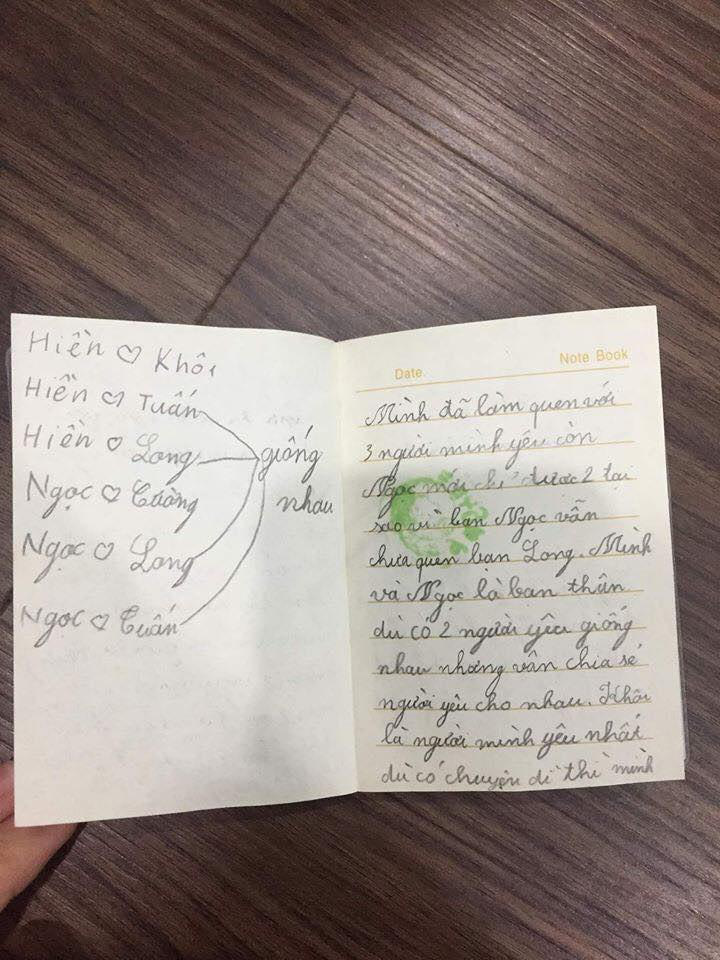 Hiền ♡ Khôi
Hiền ♡ Tuấn
Hiền ♡ Long
giống
nhau
Ngọc ♡ Cường
Ngọc ♡ Long
Ngọc ♡ Tuấn
Date
Note Book
Mình đã làm quen với
3 người mình yêu còn
Ngọc mới chỉ được 2 tại
sao vì bạn Ngọc vẫn
chưa quen bạn Long. Mình
và Ngọc là bạn thân
dù có 2 người yêu giống
nhau nhưng vẫn chia sẻ
người yêu cho nhau. Khôi
là người mình yêu nhất
dù có chuyện dì thì mình